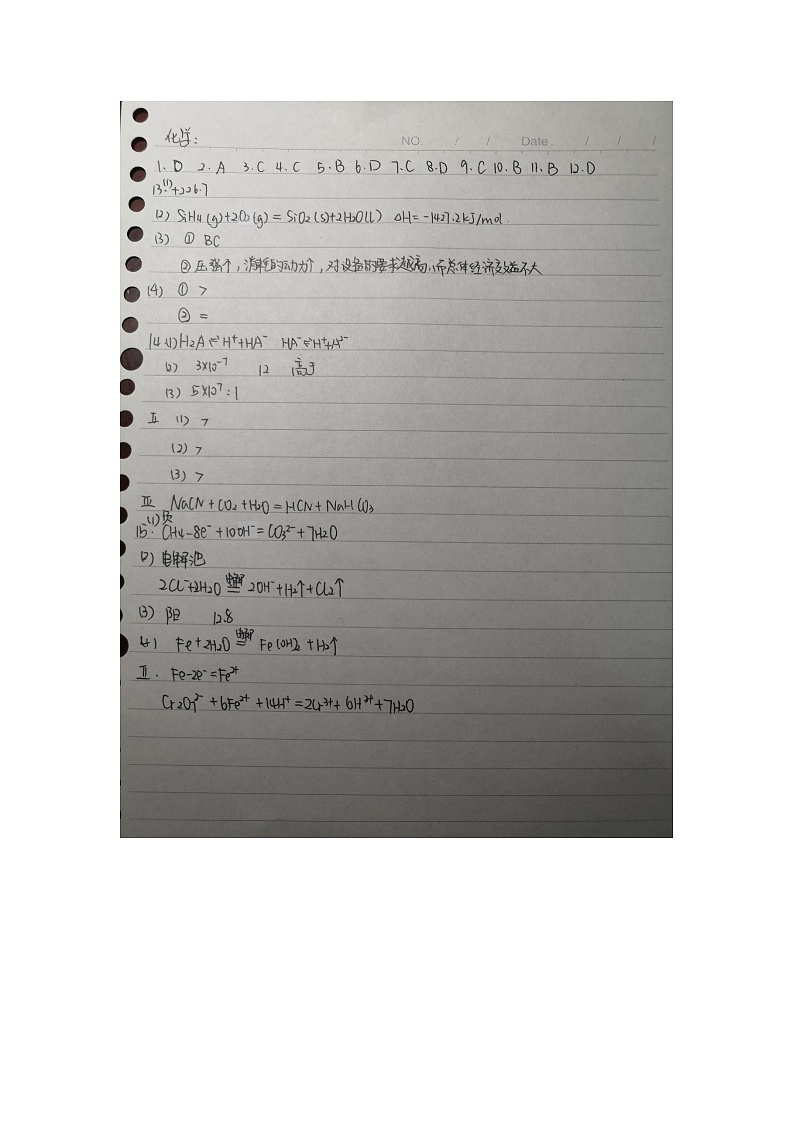 化学:
NO. / / Date. / / /
1. D 2. A 3. C 4. C 5. B 6. D 7. C 8. D 9. C 10. B 11. B 12. D
13.(1)+226.7
(2) SiH4(g)+2O2(g) = SiO2(s)+2H2O(l) ΔH=-1427.2kJ/mol.
(3) ① BC
②压强个,消耗的动力个,对设备的要求越高,而总体经济效益不大
(4) ① >
② =
14.(1)H2A⇌H⁺+HA⁻ HA⁻⇌H⁺+A²⁻
(2) 3×10⁻⁷ 12 高于
(3) 5×10⁷:1
II (1) >
(2) >
(3) >
III NaCN+CO2+H2O=HCN+NaHCO3
15.(1)负
CH4-8e⁻+10OH⁻=CO3²⁻+7H2O
(2)电解池
2Cl⁻+2H2O 电解= 2OH⁻+H2↑+Cl2↑
(3) 阳 12.8
(4)I Fe+2H2O 电解= Fe(OH)2+H2↑
II. Fe-2e⁻=Fe²⁺
Cr2O7²⁻+6Fe²⁺+14H⁺=2Cr³⁺+6H³⁺+7H2O